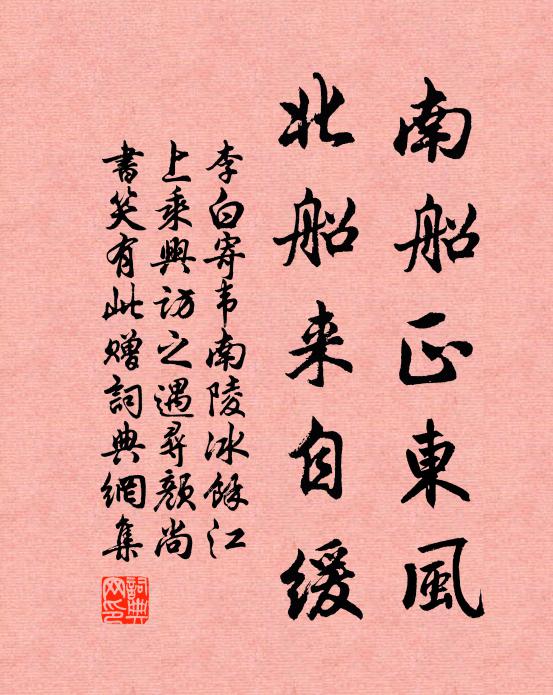 南船正東風
北船来自緩
李白寄韦南陵冰餘江
上乘興訪之遇尋顏尚
書笑有此贈詞典網集
詞典
网印